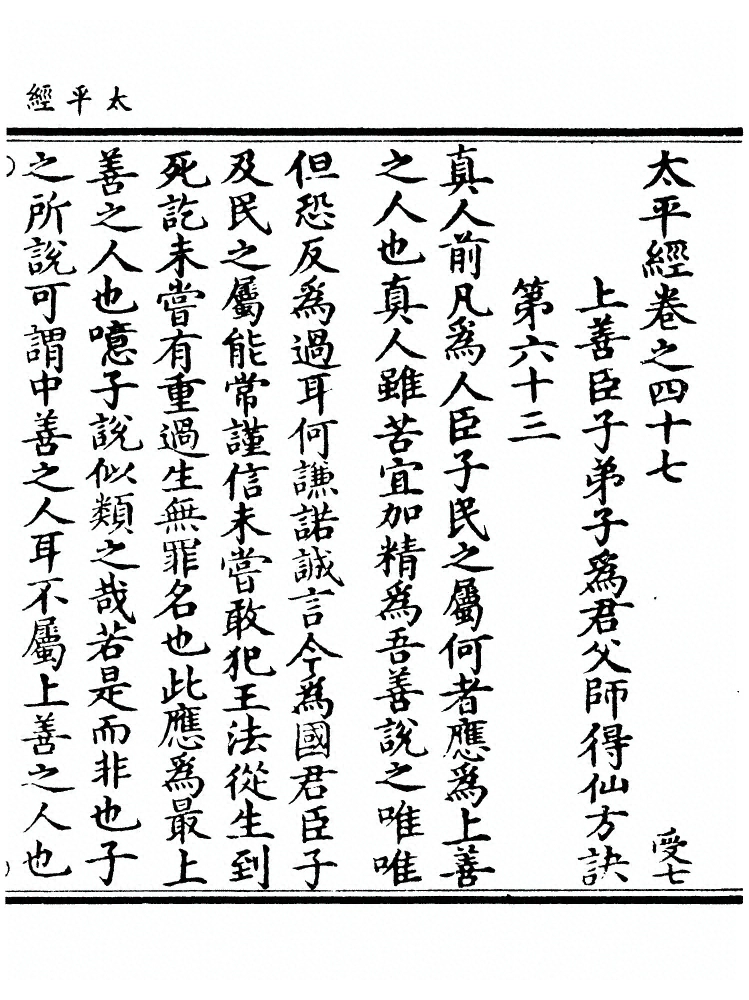 太平經
太平經卷之四十七
受七
上善臣子弟子爲君父師得仙方訣
第六十三
真人前凡爲人臣子民之屬何者應爲上善
之人也真人雖苦宜加精爲吾善說之唯唯
但恐反爲過耳何謙諾誠言今爲國君臣子
及民之屬能常謹信未嘗敢犯王法從生到
死訖未嘗有重過生無罪名也此應爲最上
善之人也噫子說似類之哉若是而非也子
之所說可謂中善之人耳不屬上善之人也